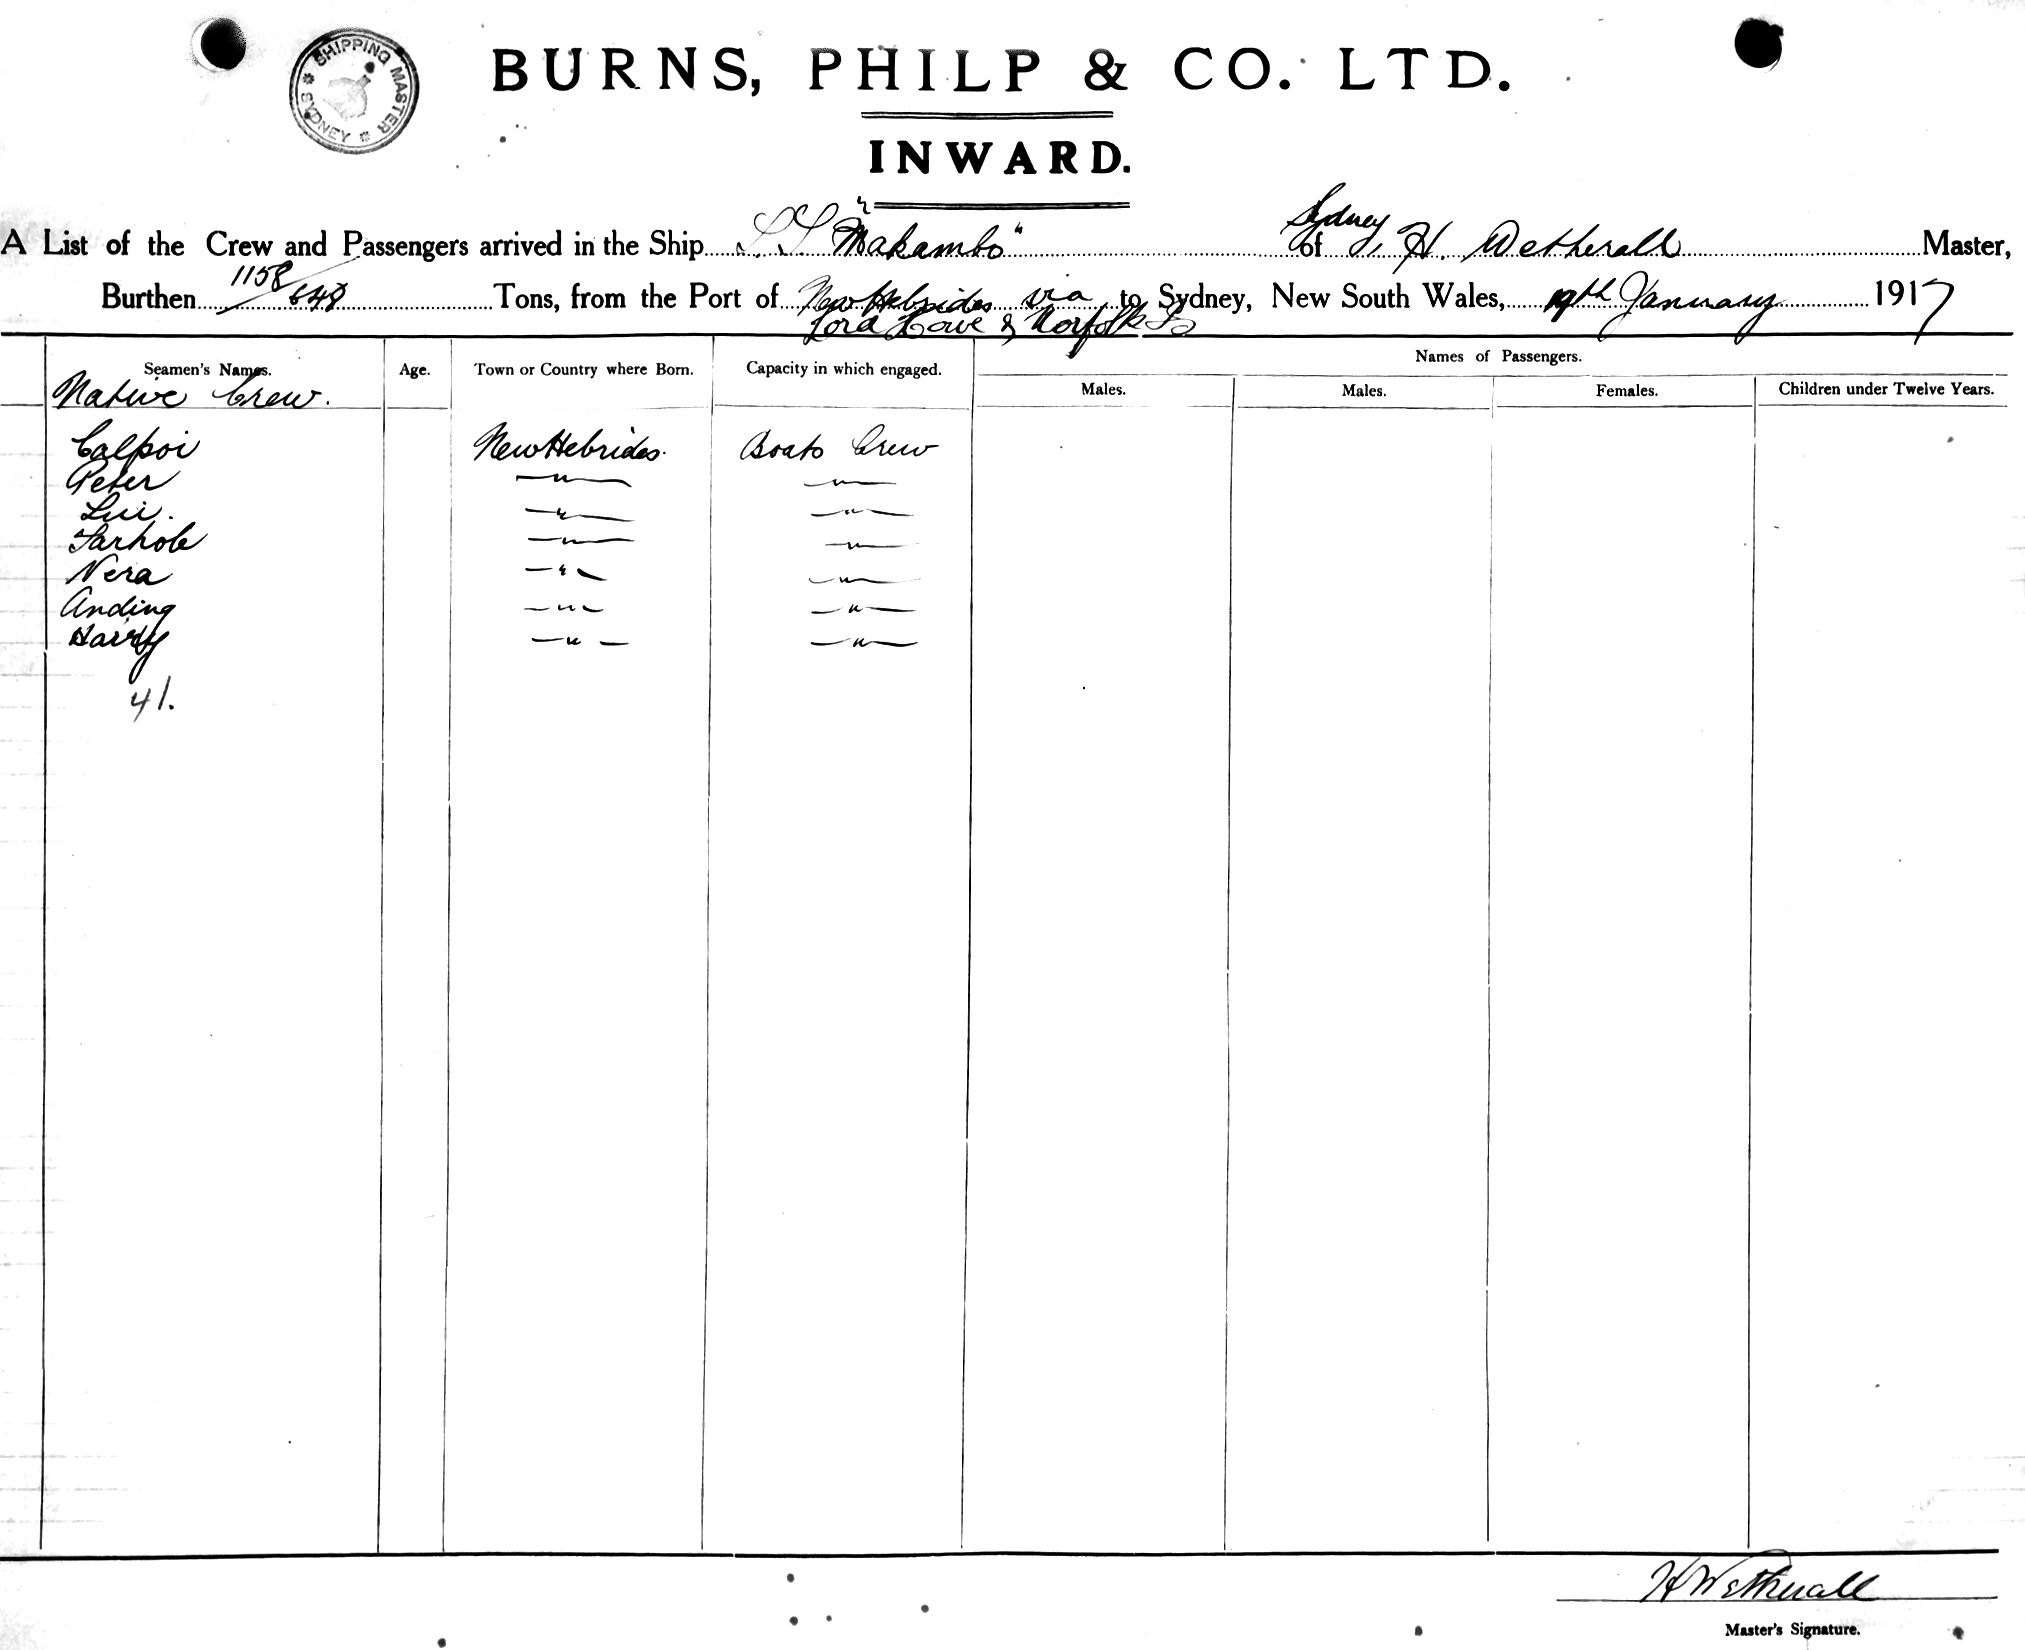 SHIPPING MASTER * SYDNEY *
BURNS, PHILP & CO. LTD.
INWARD.
A List of the Crew and Passengers arrived in the Ship S.S. "Makambo" of Sydney, H. Wetherall Master,
Burthen 1158/648 Tons, from the Port of New Hebrides via Lord Howe & Norfolk Is to Sydney, New South Wales, 19th January 1917
Seamen's Names. Age. Town or Country where Born. Capacity in which engaged. Names of Passengers.
Males. Males. Females. Children under Twelve Years.
Native Crew.
Calpoi New Hebrides. Boats Crew
Peter —"— —"—
Lui. —"— —"—
Sarhole —"— —"—
Nera —"— —"—
Anding —"— —"—
Harry —"— —"—
41.
H Wetherall
Master's Signature.